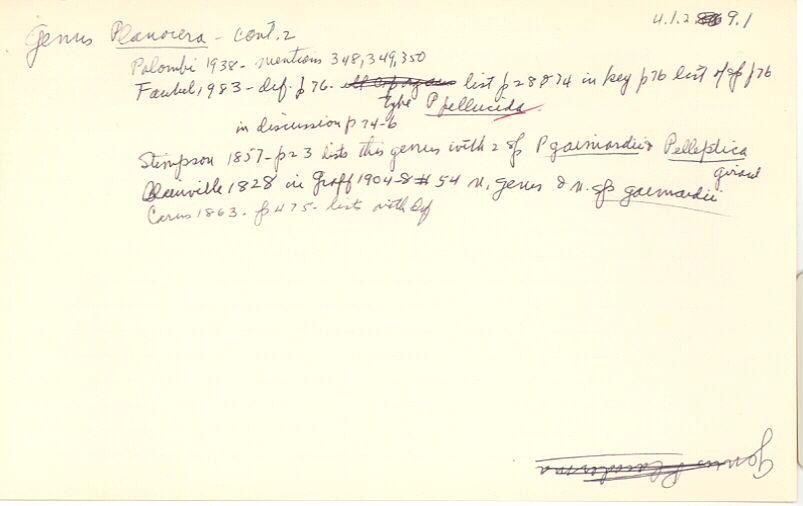 4.1.2 9.1
Genus Planocera - cont. 2
Palombi 1938 - mentions 348, 349, 350
Faubel, 1983 - def. p 76 - list p 28 & 74 in key p 76 list of sp p 76
type P pellucida.
in discussion p 74-6
Stimpson 1857 - p 23 lists this genus with 2 sp P gaimardii & P elleptica
girard
Blainville 1828 in Graff 1904-8 # 54 n. genus & n. sp gaemardii
Carus 1863 - p 475 - lists with def
Genus